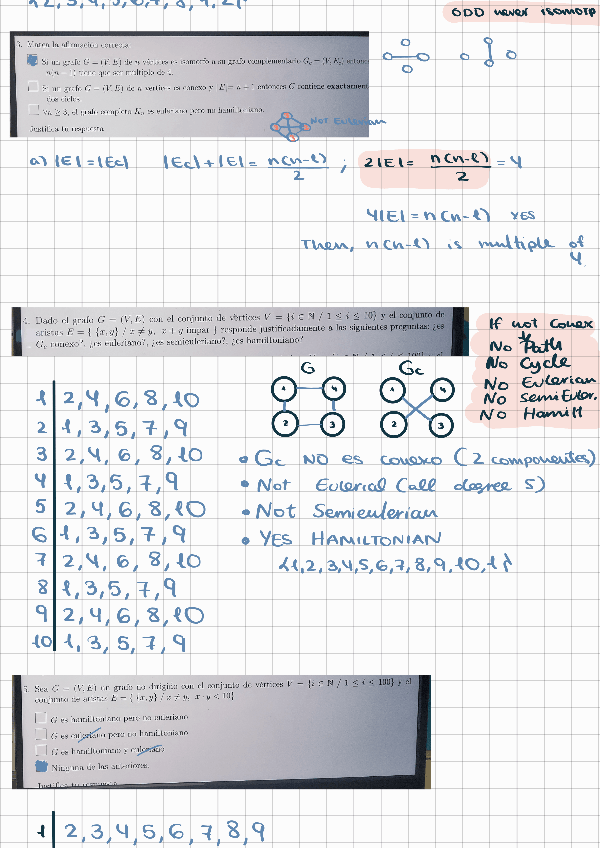 1,2, 3, 4, 5, 6, 7, 8, 9, 2}
ODD never isomorp
3. Marca la afirmación correcta
Si un grafo G = (V, E) de n vértices es isomorfo a su grafo complementario Gc = (V, Ec) entonc
n(n − 1) tiene que ser múltiplo de 4.
Si un grafo G = (V, E) de n vértices es conexo y |E| = n − 1 entonces G contiene exactament
dos ciclos.
∀n ≥ 3, el grafo completo Kn es euleriano pero no hamiltoniano.
Justifica tu respuesta
Not Eulerian
a) |E| = |Ec| |Ec| + |E| = n(n-1)/2 ; 2|E| = n(n-1)/2 = 4
4|E| = n(n-1) YES
Then, n(n-1) is multiple of
4.
4. Dado el grafo G = (V, E) con el conjunto de vértices V = {i ∈ N / 1 ≤ i ≤ 10} y el conjunto de
aristas E = { {x, y} / x ≠ y, x + y impar } responde justificadamente a las siguientes preguntas: ¿es
Gc conexo?, ¿es euleriano?, ¿es semieuleriano?, ¿es hamiltoniano?
If not conex
No Path
No Cycle
No Eulerian
No SemiEuler.
No Hamilt
G Gc
1 4 1 4
2 3 2 3
1 2, 4, 6, 8, 10
2 1, 3, 5, 7, 9
3 2, 4, 6, 8, 10
4 1, 3, 5, 7, 9
5 2, 4, 6, 8, 10
6 1, 3, 5, 7, 9
7 2, 4, 6, 8, 10
8 1, 3, 5, 7, 9
9 2, 4, 6, 8, 10
10 1, 3, 5, 7, 9
• Gc NO es conexo (2 componentes)
• Not Eulerial (all degree 5)
• Not Semieulerian
• YES HAMILTONIAN
{1,2,3,4,5,6,7,8,9,10,1}
5. Sea G = (V, E) un grafo no dirigido con el conjunto de vértices V = {i ∈ N / 1 ≤ i < 100} y el
conjunto de aristas E = { {x, y} / x ≠ y, x · y < 10}
G es hamiltoniano pero no euleriano
G es euleriano pero no hamiltoniano
G es hamiltoniano y euleriano
Ninguna de las anteriores.
1 2, 3, 4, 5, 6, 7, 8, 9